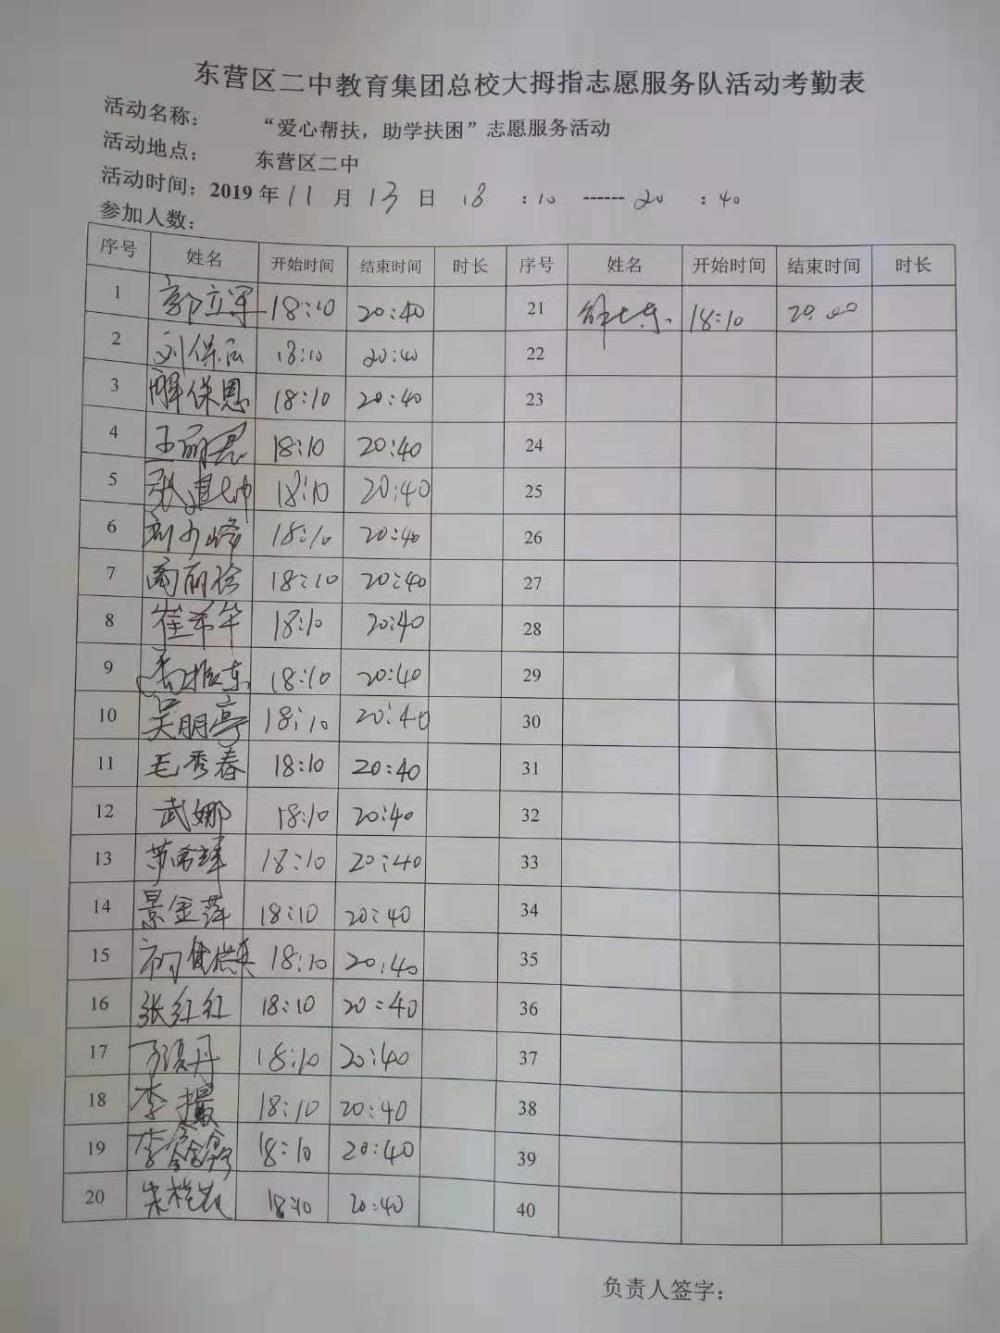 东营区二中教育集团总校大拇指志愿服务队活动考勤表
活动名称： “爱心帮扶，助学扶困”志愿服务活动
活动地点： 东营区二中
活动时间：2019年11月13日 18 :10 ------20 :40
参加人数：
序号 姓名 开始时间 结束时间 时长 序号 姓名 开始时间 结束时间 时长
1 郭立军 18:10 20:40 21 18:10 20:40
2 刘保 18:10 20:40 22
3 解保恩 18:10 20:40 23
4 王丽君 18:10 20:40 24
5 张建帅 18:10 20:40 25
6 刘少峰 18:10 20:40 26
7 商丽珍 18:10 20:40 27
8 崔希华 18:10 20:40 28
9 振东 18:10 20:40 29
10 吴朋亭 18:10 20:40 30
11 毛秀春 18:10 20:40 31
12 武娜 18:10 20:40 32
13 18:10 20:40 33
14 景金萍 18:10 20:40 34
15 18:10 20:40 35
16 张红红 18:10 20:40 36
17 丹 18:10 20:40 37
18 李 18:10 20:40 38
19 李鑫鑫 18:10 20:40 39
20 朱 18:10 20:40 40
负责人签字：